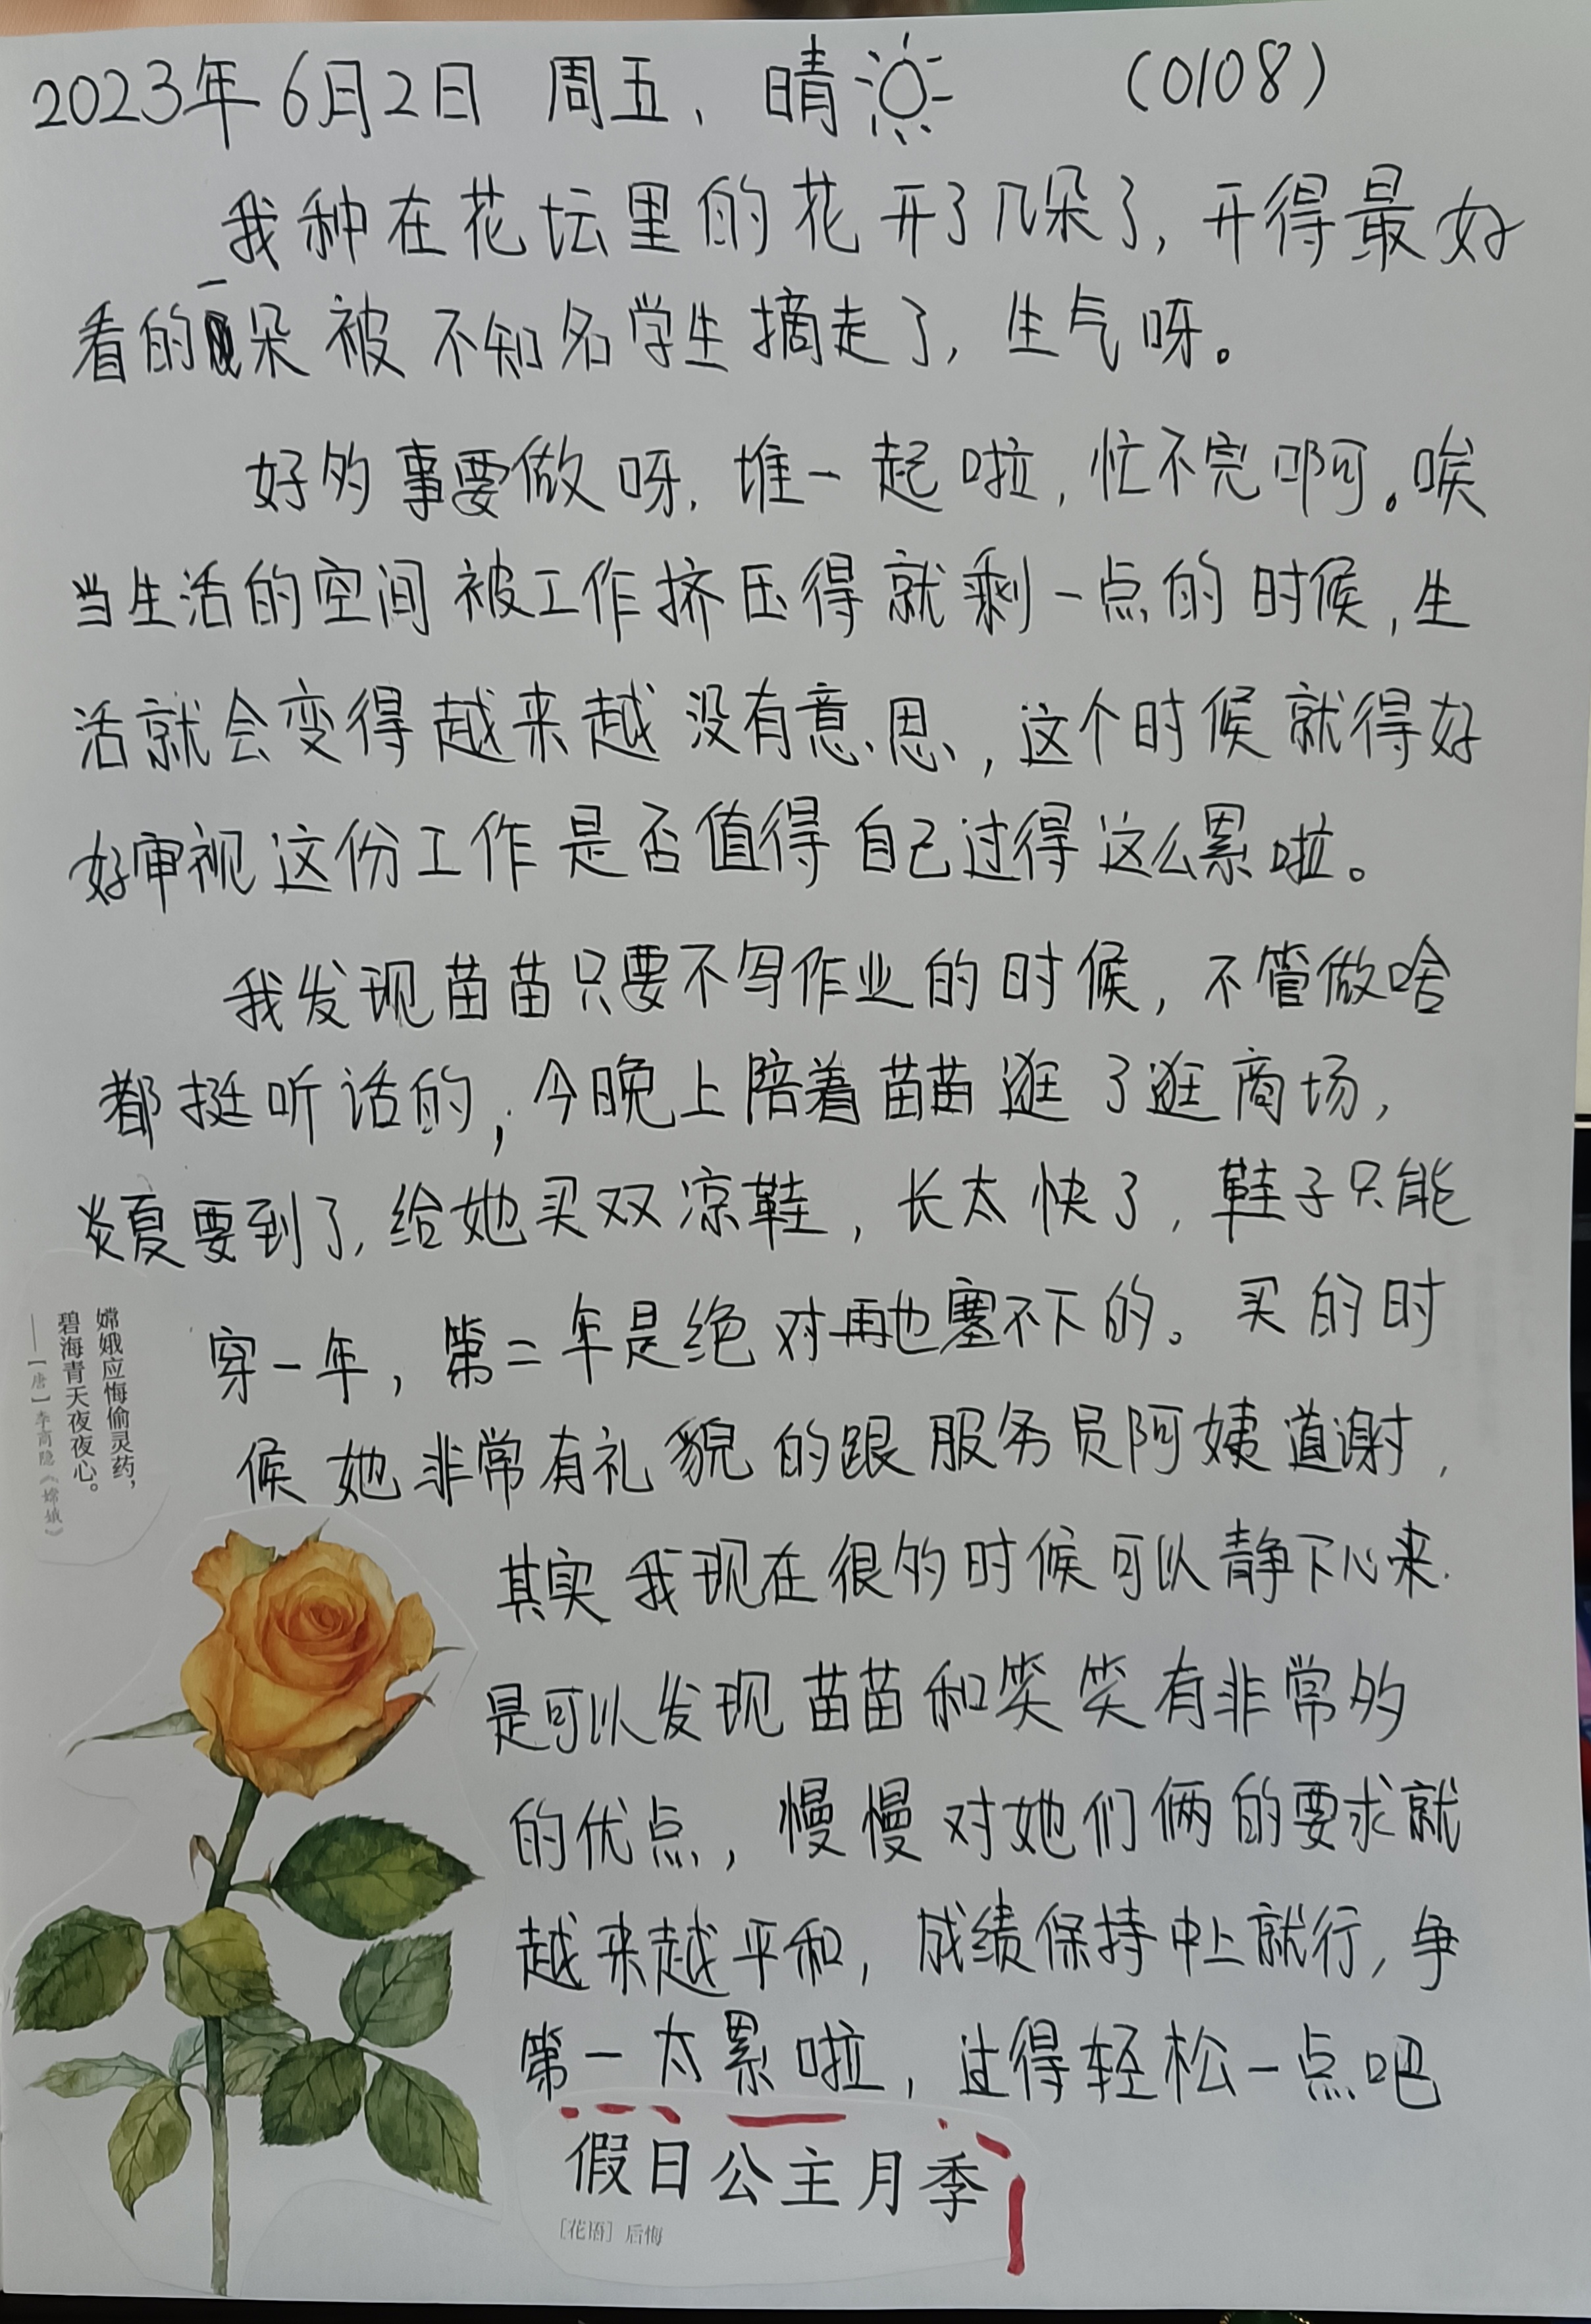 2023年6月2日 周五、晴 (0108)
我种在花坛里的花开了几朵了,开得最好
看的一朵被不知名学生摘走了,生气呀。
好多事要做呀,堆一起啦,忙不完啊。唉
当生活的空间被工作挤压得就剩一点的时候,生
活就会变得越来越没有意思,这个时候就得好
好审视这份工作是否值得自己过得这么累啦。
我发现苗苗只要不写作业的时候,不管做啥
都挺听话的,今晚上陪着苗苗逛了逛商场,
炎夏要到了,给她买双凉鞋,长太快了,鞋子只能
穿一年,第二年是绝对再也塞不下的。买的时
候她非常有礼貌的跟服务员阿姨道谢,
其实我现在很多时候可以静下心来.
是可以发现苗苗和笑笑有非常多
的优点,慢慢对她们俩的要求就
越来越平和,成绩保持中上就行,争
第一太累啦,过得轻松一点吧
嫦娥应悔偷灵药,
碧海青天夜夜心。
——[唐]李商隐《嫦娥》
假日公主月季
[花语] 后悔